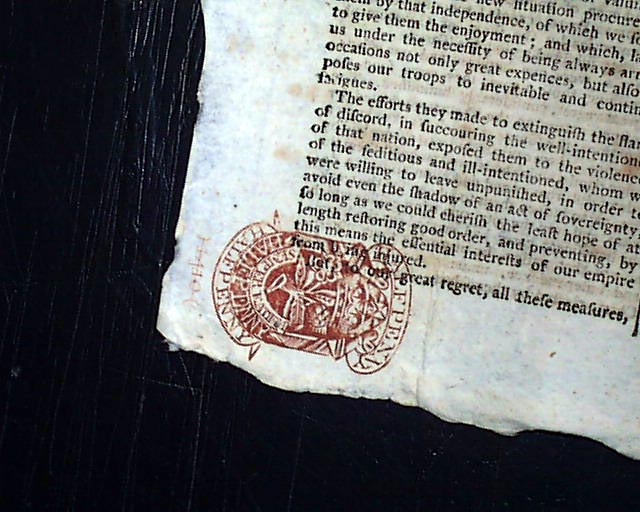 new situation procure
them by that independence, of which we
to give them the enjoyment; and which,
us under the neceſſity of being always
occaſions not only great expences, but alſo
poſes our troops to inevitable and
fatigues.
The efforts they made to extinguiſh the
of diſcord, in ſuccouring the
of that nation, expoſed them to the violence
of the ſeditious and ill-intentioned, whom
were willing to leave unpuniſhed, in order
avoid even the ſhadow of an act of ſovereignty,
ſo long as we could cheriſh the leaſt hope of
length reſtoring good order, and preventing, by
this means the eſſential intereſts of our empire
from being injured.
to our great regret, all theſe meaſures,
HALFPENNY
HALF PENNY